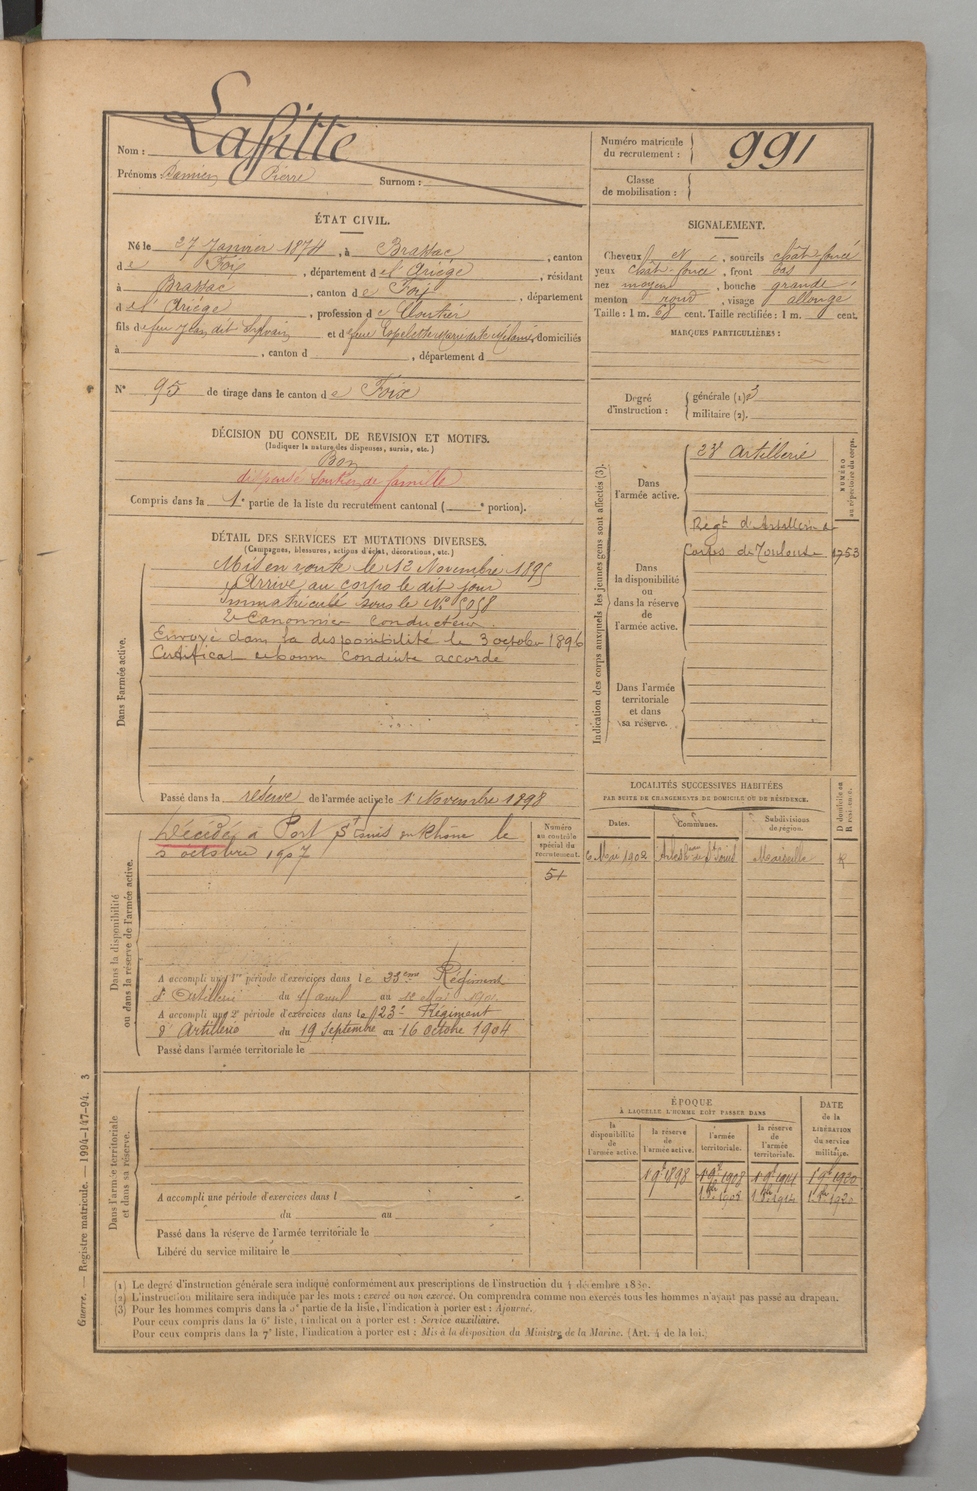 Nom : Laffitte
Prénoms : Damien Pierre Surnom :
Numéro matricule du recrutement : 991
Classe de mobilisation :
ÉTAT CIVIL.
Né le 27 Janvier 1874, à Brassac, canton
de Foix, département de l'Ariège, résidant
à Brassac, canton de Foix, département
de l'Ariège, profession de Cloutier
fils de feu Jean dit Sylvain et de feue Espelette Marie dite Mélanie, domiciliés
à , canton d , département d
N° 95 de tirage dans le canton de Foix
DÉCISION DU CONSEIL DE REVISION ET MOTIFS.
(Indiquer la nature des dispenses, sursis, etc.)
Bon
dispensé soutien de famille
Compris dans la 1e partie de la liste du recrutement cantonal ( e portion).
DÉTAIL DES SERVICES ET MUTATIONS DIVERSES.
(Campagnes, blessures, actions d'éclat, décorations, etc.)
Dans l'armée active.
Mis en route le 13 Novembre 1895
Arrivé au corps le dit jour
Immatriculé sous le N° 5058
2e Canonnier Conducteur
Envoyé dans la disponibilité le 3 octobre 1896
Certificat de bonne conduite accordé
Passé dans la réserve de l'armée active le 1r Novembre 1898
Dans la disponibilité ou dans la réserve de l'armée active.
Décédé à Port St Louis du Rhône le
octobre 1907
Numéro au contrôle spécial du recrutement.
A accompli une 1re période d'exercices dans le Régiment
d'Artillerie du avril au 12 Mai
A accompli une 2e période d'exercices dans le 23e Régiment
d'Artillerie du 19 Septembre au 16 octobre 1904
Passé dans l'armée territoriale le
Dans l'armée territoriale et dans sa réserve.
A accompli une période d'exercices dans l
du au
Passé dans la réserve de l'armée territoriale le
Libéré du service militaire le
SIGNALEMENT.
Cheveux et , sourcils chât-foncé
yeux chât-foncé, front bas
nez moyen, bouche grande
menton rond, visage allongé
Taille : 1 m. 68 cent. Taille rectifiée : 1 m. cent.
MARQUES PARTICULIÈRES :
Degré d'instruction : générale (1) 3
militaire (2).
Indication des corps auxquels les jeunes gens sont affectés (3).
NUMÉRO au répertoire du corps.
Dans l'armée active.
23e Artillerie
Dans la disponibilité ou dans la réserve de l'armée active.
Régt d'Artillerie
Corps de Toulouse 1753
Dans l'armée territoriale et dans sa réserve.
LOCALITÉS SUCCESSIVES HABITÉES
PAR SUITE DE CHANGEMENTS DE DOMICILE OU DE RÉSIDENCE.
D domicile ou R résidence.
Dates. Communes. Subdivisions de région.
6 Mai 1902 Arles St Louis Marseille R
ÉPOQUE
À LAQUELLE L'HOMME DOIT PASSER DANS
DATE de la LIBÉRATION du service militaire.
la disponibilité de l'armée active. la réserve de l'armée active. l'armée territoriale. la réserve de l'armée territoriale.
1r 9bre 1898 1r 9bre 1908 1r 9bre 1920
(1) Le degré d'instruction générale sera indiqué conformément aux prescriptions de l'instruction du 4 décembre 1889.
(2) L'instruction militaire sera indiquée par les mots : exercé ou non exercé. On comprendra comme non exercés tous les hommes n'ayant pas passé au drapeau.
(3) Pour les hommes compris dans la 5e partie de la liste, l'indication à porter est : Ajourné.
Pour ceux compris dans la 6e liste, l'indication à porter est : Service auxiliaire.
Pour ceux compris dans la 7e liste, l'indication à porter est : Mis à la disposition du Ministre de la Marine. (Art. 4 de la loi.)
Guerre. — Registre matricule. — 1994-147-94. 3